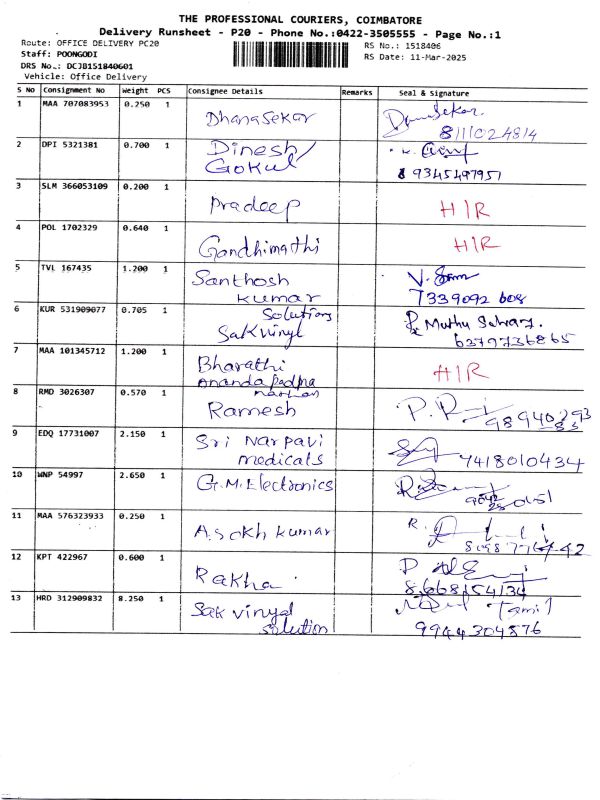 THE PROFESSIONAL COURIERS, COIMBATORE
Delivery Runsheet - P20 - Phone No.:0422-3505555 - Page No.:1
Route: OFFICE DELIVERY PC20
RS No.: 1518406
Staff: POONGODI
RS Date: 11-Mar-2025
DRS No.: DCJB151840601
Vehicle: Office Delivery
S No Consignment No Weight PCS Consignee Details Remarks Seal & Signature
1 MAA 707083953 0.250 1 Dhanasekar
8111024814
2 DPI 5321381 0.700 1 Dinesh/
Gokul
9345497951
3 SLM 366053109 0.200 1 Pradeep H/R
4 POL 1702329 0.640 1 Gandhimathi H/R
5 TVL 167435 1.200 1 Santhosh
kumar 7339092 608
6 KUR 531909077 0.705 1 Solutions Muthu Selvaraj.
Sakvinyl 6379736865
7 MAA 101345712 1.200 1 Bharathi H/R
Anandapadma
nathan
8 RMD 3026307 0.570 1 Ramesh
9 EDQ 17731007 2.150 1 Sri Narpavi
medicals 7418010434
10 WNP 54997 2.650 1 G.M.Electronics
11 MAA 576323933 0.250 1 Asokh kumar
12 KPT 422967 0.600 1 Rakha.
8668154134
13 HRD 312909832 8.250 1 Sak vinyal Tamil
solution 9944304876